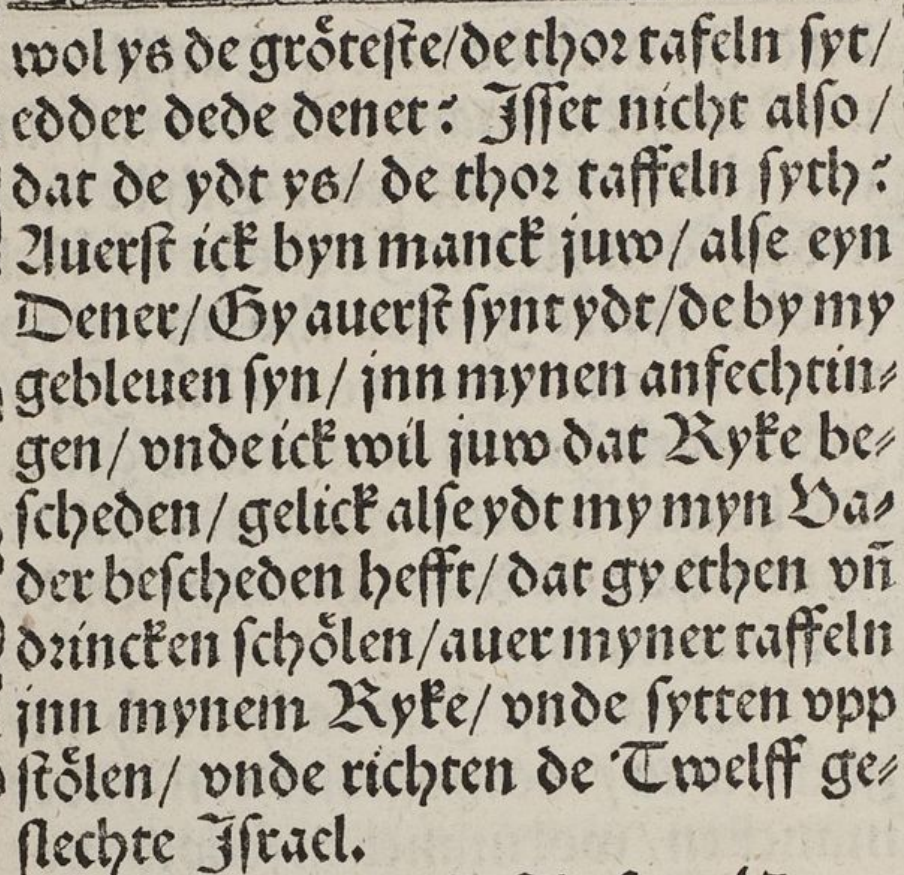 wol ys de groͤteste/de thor tafeln syt/
edder dede denet? Isset nicht also /
dat de ydt ys/ de thor taffeln syth?
Auerst ick byn manck juw/ alse eyn
Dener/ Gy auerst synt ydt/de by my
gebleuen syn/ jnn mynen anfechtin⸗
gen/ vnde ick wil juw dat Ryke be⸗
scheden/ gelick alse ydt my myn Va⸗
der bescheden hefft/ dat gy ethen vn̄
drincken schoͤlen/auer myner taffeln
jnn mynem Ryke/ vnde sytten vpp
stoͤlen/ vnde richten de Twelff ge⸗
slechte Israel.